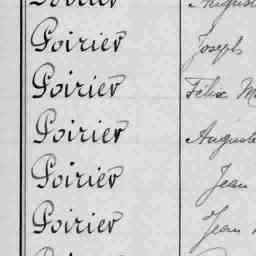 Poirier Joseph
Poirier Félix
Poirier Auguste
Poirier Jean
Poirier Jean